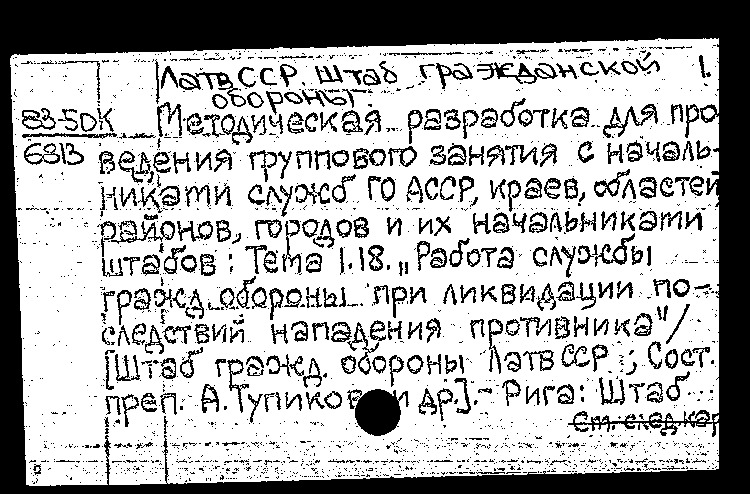 ЛатвССР. Штаб гражданской 1.
обороны.
83-50К Методическая разработка для про
6313 ведения группового занятия с началь-
никами служб ГО АССР, краев, областей
районов, городов и их начальниками
штабов : Тема 1.18. „Работа службы
гражд. обороны при ликвидации по-
следствий нападения противника"/
[Штаб гражд. обороны ЛатвССР ; Сост.
преп. А. Тупиков и др.].- Рига: Штаб
См. след. кар